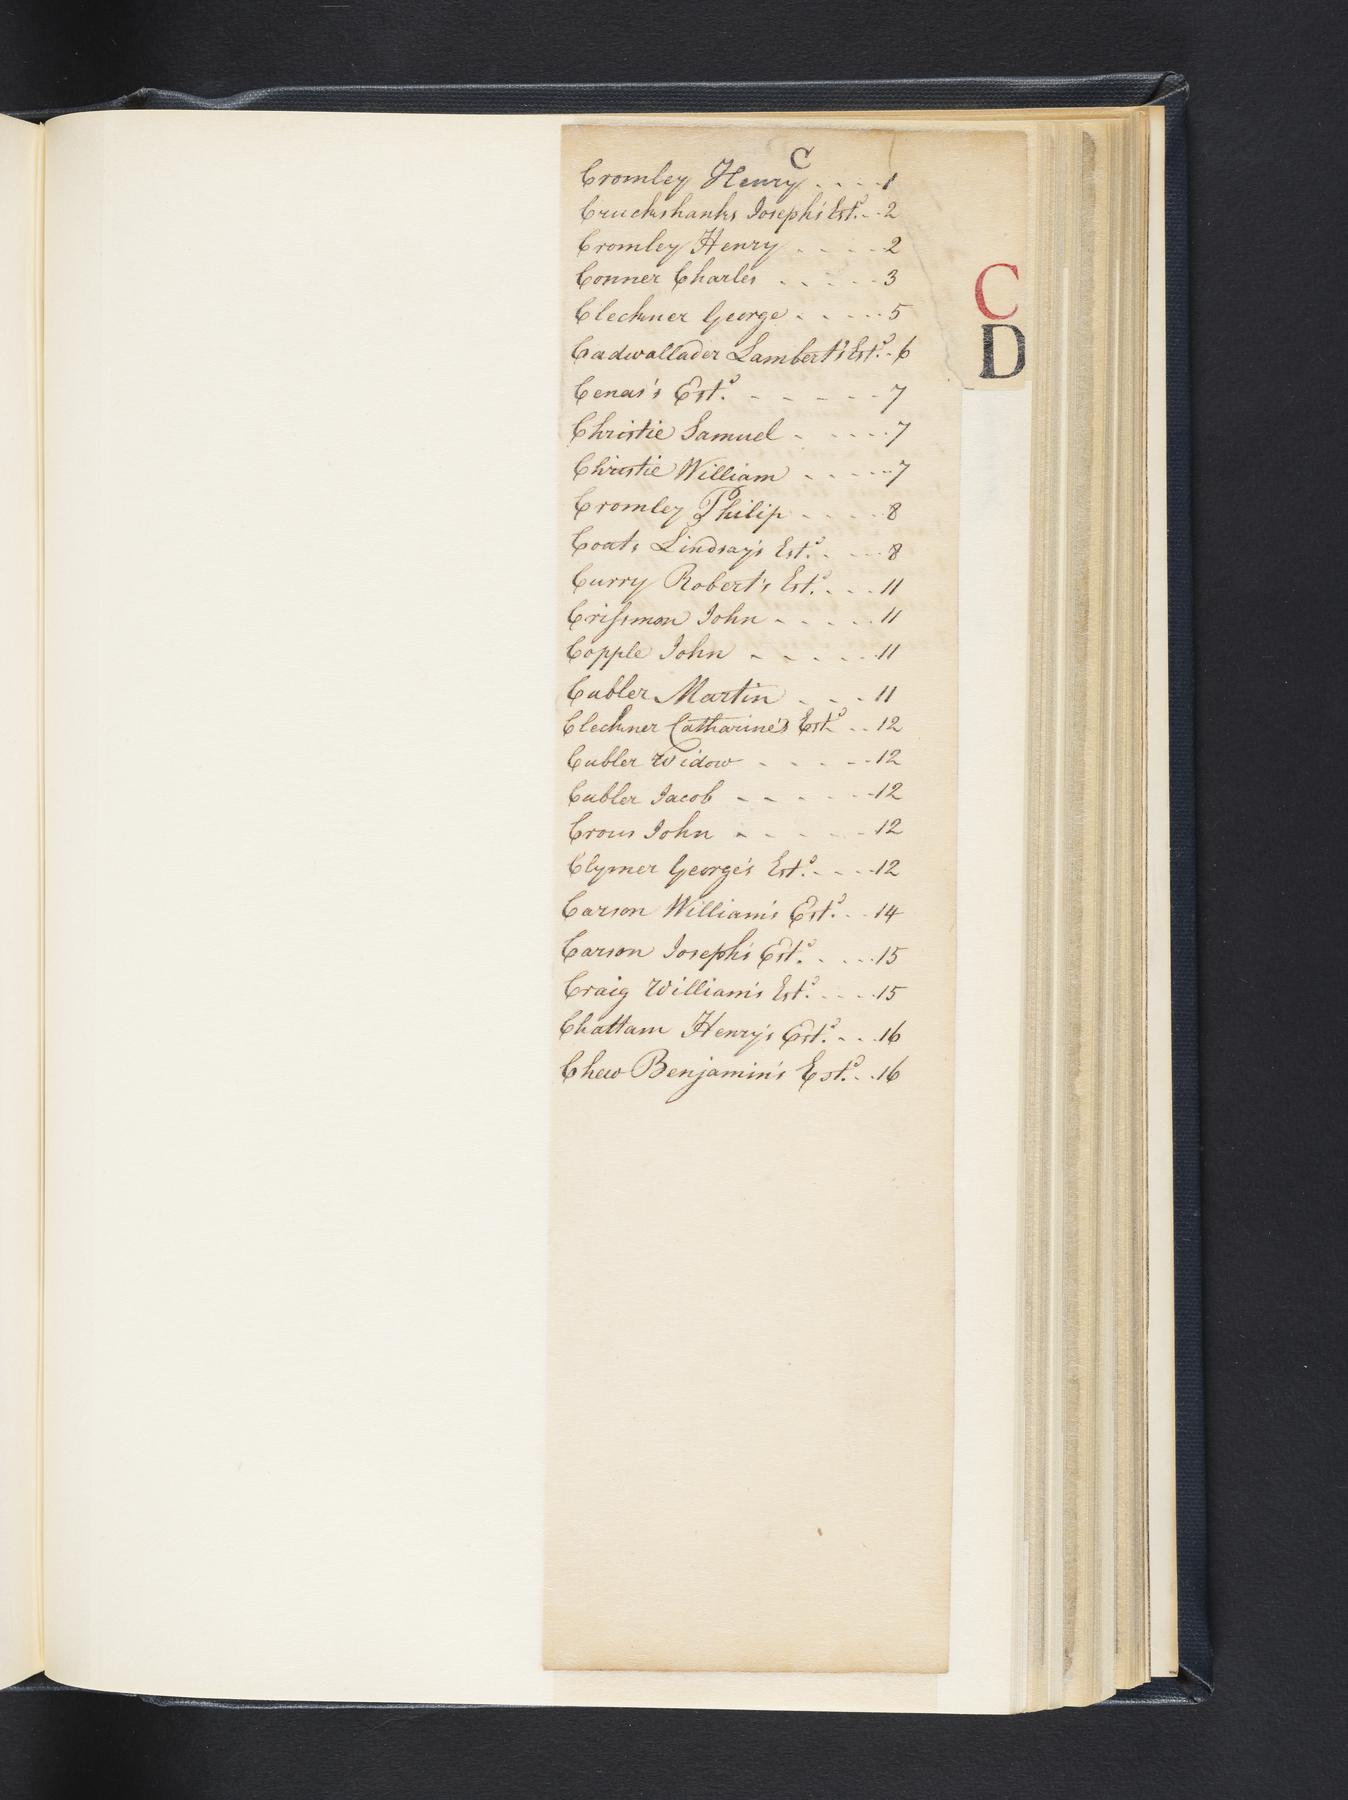 C
Cromley Henry . . . . 1
Cruckshanks Joseph's Est.^d . . 2
Cromley Henry . . . . 2
Conner Charles . . . . . 3
Cleckner George . . . . . 5
Cadwallader Lambert's Est.^d . 6
Cenas's Est.^d - - - - - - 7
Christie Samuel . . . . . 7
Christie William . . . . . 7
Cromley Philip . . . . 8
Coats Lindsay's Est.^d . . . 8
Curry Robert's Est.^d . . . 11
Crifsmon John - - - - - 11
Copple John - - - - - 11
Cubler Martin . . . 11
Cleckner Catharine's Est.^d . . 12
Cubler Widow - - - - - 12
Cubler Jacob - - - - - 12
Crous John - - - - - 12
Clymer George's Est.^d . . . . 12
Carson William's Est.^d . . 14
Carson Joseph's Est.^d . . . . 15
Craig William's Est.^d . . . . 15
Chattam Henry's Est.^d . . . 16
Chew Benjamin's Est.^d . . 16
C
D